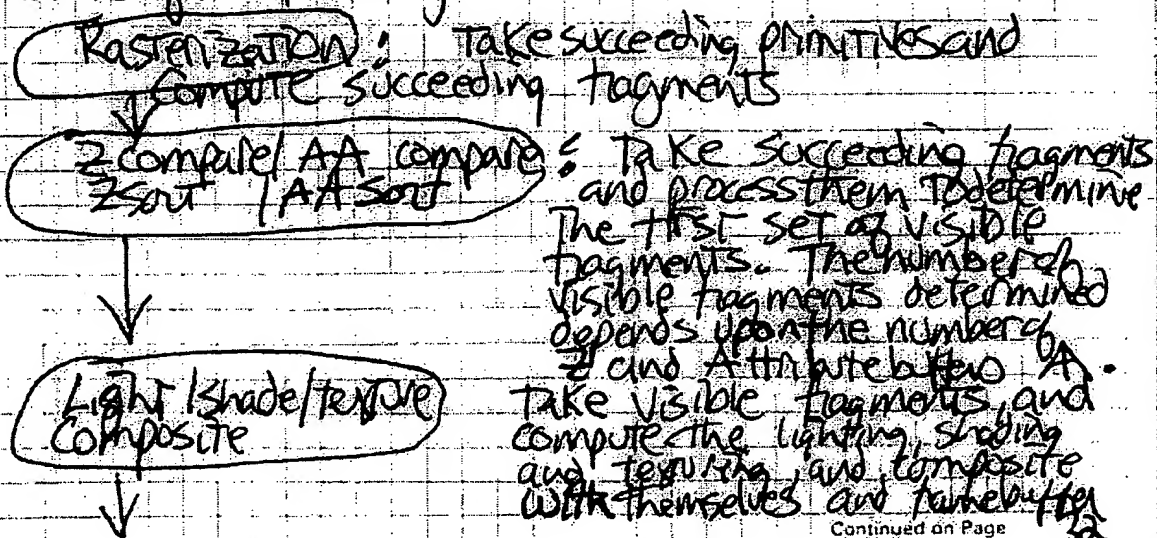 Rasterization : Take succeeding primitives and
Compute succeeding fragments
Z compare / AA compare : Take succeeding fragments
Z sort / AA sort and process them to determine
The first set of visible
fragments. The number of
visible fragments determined
depends upon the number of
Z and Attribute buffers
Light / shade / texture Take visible fragments, and
Composite compute the lighting, shading
and texturing, and composite
with themselves and framebuffer
Continued on Page